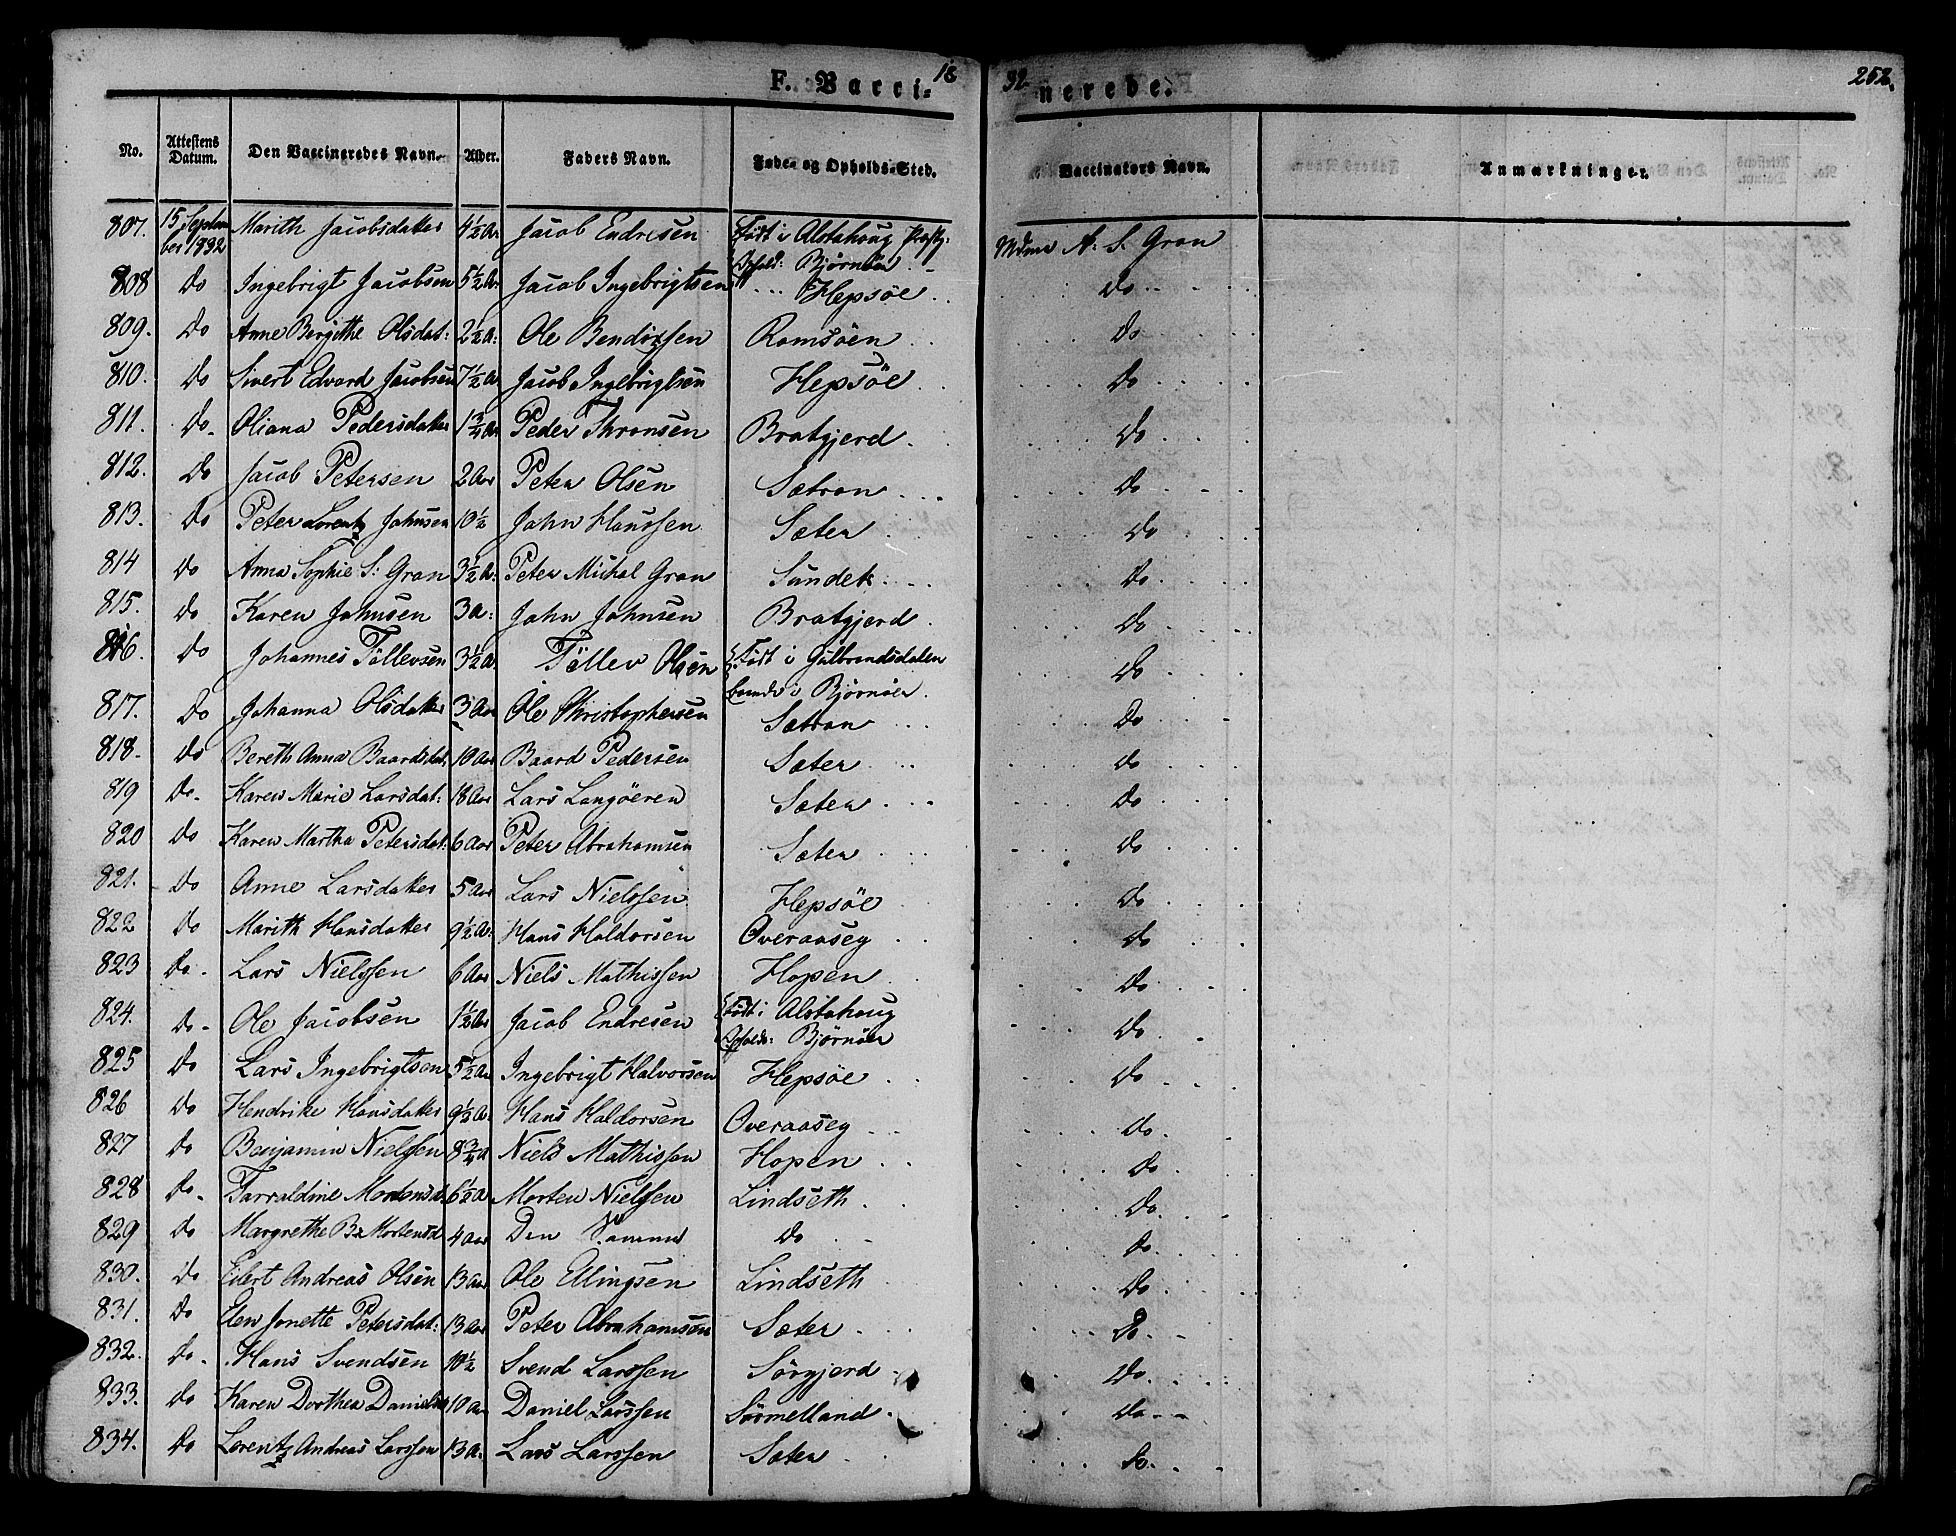 F. Vacci- 18 32 nerede. 252.
No. Attestens Datum. Den Vaccineredes Navn. Alder. Faders Navn. Føde- og Opholds-Sted. Vaccinators Navn. Anmærkninger.
807. 15 Septem- Marith Jacobsdatter 4½ Aa Jacob Endresen Født i Alstahoug Præstg: Mdme A: S. Gran
ber 1832 Ophold: Bjørnøer
808 Do Ingebrigt Jacobsen 5½ A Jacob Ingebrigtsen Hepsöe Do
809. Do Anne Bergithe Olsdat: 2½ A: Ole Bendixsen Ramsöen Do
810. Do Sivert Edvard Jacobsen 7½ A Jacob Ingebrigtsen Hepsöe Do
811. Do Oliana Pedersdatter 1¾ A Peder Thronsen Bratgjerd Do
812. Do Jacob Petersen 2 Aar Peter Olsen Sætran Do
813. Do Peter Lorentz Johnsen 10½ John Hanssen Sæter Do
814 Do Anna Sophie S: Gran 3½ A: Peter Michal Gran Sundet Do
815. Do Karen Johnsen 3 A: John Johnsen Bratgjerd Do
816. Do Johannes Töllevsen 3½ A. Töllev Olsen Født i Gulbrandsdalen Do
boende i Bjørnøer
817. Do Johanna Olsdatter 3 Aar Ole Christophersen Sætran Do
818. Do Bereth Anna Baardsdat. 10 Aar Baard Pedersen Sæter Do
819 Do Karen Marie Larsdat: 18 Aar Lars Langöeren Sæter Do
820 Do Karen Martha Petersdat: 6 Aar Peter Abrahamsen Sæter Do
821. Do Anne Larsdatter 5 Aar Lars Nielssen Hepsöe Do
822 Do Marith Hansdatter 9½ A: Hans Haldorsen Overaaseg Do
823 Do Lars Nielssen 6 Aar Niels Mathissen Hopen Do
824. Do Ole Jacobsen 1½ Aar Jacob Endresen Født i Alstahoug Do
Opholds: Bjørnøer
825 Do Lars Ingebrigtsen 5½ A Ingebrigt Halvorsen Hepsöe Do
826 Do Hendrike Hansdatter 9½ A Hans Haldorsen Overaaseg Do
827 Do Benjamin Nielssen 8¾ A Niels Mathissen Hopen Do
828 Do Tarraldine Mortensd 6½ A Morten Nielssen Lindseth Do
829 Do Margrethe Mortensd 4 Aar Den Samme Do Do
830. Do Eilert Andreas Olsen 13 Aar Ole Ellingsen Lindseth Do
831. Do Elen Jonette Petersdat: 13 Aar Peter Abrahamsen Sæter Do
832. Do Hans Svendsen 10½ Svend Larssen Sörgjerd Do
833. Do Karen Dorthea Danielsd 10 Aar Daniel Larssen Sörmelland Do
834. Do Lorentz Andreas Larssen 13 A: Lars Larssen Sæter Do